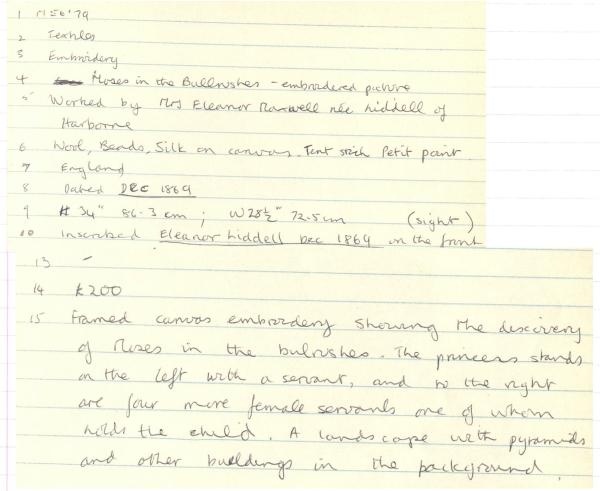 1 M56'79
2 Textiles
3 Embroidery
4 Moses in the Bullrushes - embroidered picture
5 Worked by Mrs Eleanor née Liddell of
Harborne
6 Wool, Beads, Silk on canvas. Tent stich Petit point
7 England
8 Dated DEC 1869
9 H 34" 86.3 cm ; W 28½" 72.5 cm (sight)
10 Inscribed Eleanor Liddell Dec 1869 on the front
13 -
14 £200
15 Framed canvas embroidery showing the discovery
of Moses in the bulrushes. The princess stands
on the left with a servant, and to the right
are four more female servants one of whom
holds the child. A landscape with pyramids
and other buildings in the background.